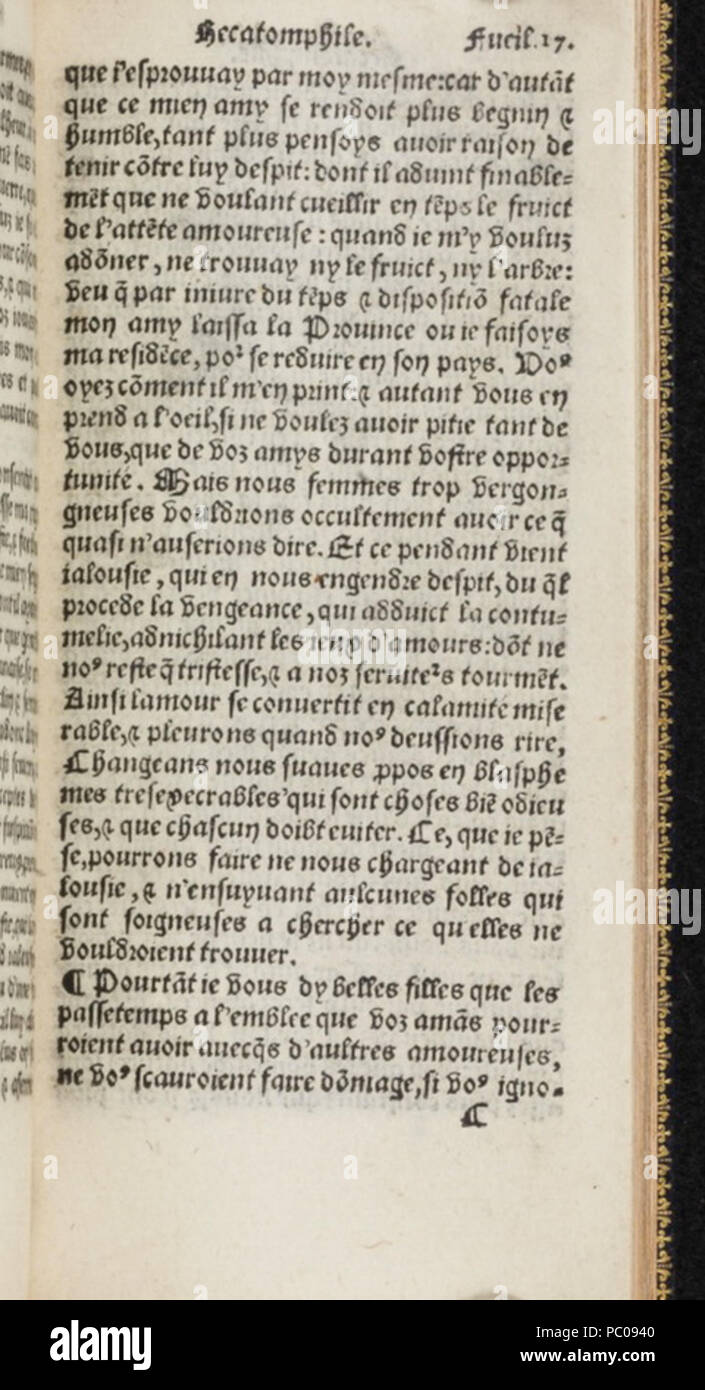 Hecatomphile. Fueil.17.
que l'esprouuay par moy mesme:car d'autāt
que ce mien amy se rendoit plus begnin ⁊
humble,tant plus pensoys auoir raison de
tenir cōtre luy despit: dont il aduint finable=
mēt que ne voulant cueillir en tēps le fruict
de l'attēte amoureuse : quand ie m'y vouluz
adōner, ne trouuay ny le fruict, ny l'arbre:
veu q̄ par iniure du tēps ⁊ dispositiō fatale
mon amy laissa la Prouince ou ie faisoys
ma residēce, poᷣ se reduire en son pays. Voꝰ
oyez cōment il m'en print:⁊ autant vous en
prend a l'oeil,si ne voulez auoir pitie tant de
vous,que de voz amys durant vostre oppor=
tunité. Mais nous femmes trop vergon=
gneuses vouldrions occultement auoir ce q̄
quasi n'auserions dire. Et ce pendant vient
ialousie, qui en nous engendre despit, du q̄l
procede la vengeance, qui adduict la contu=
melie,adnichilant les ieux d'amours:dōt ne
noꝰ reste q̄ tristesse,⁊ a noz seruiteᷣs tourmēt.
Ainsi lamour se conuertit en calamité mise
rable,⁊ pleurons quand noꝰ deussions rire,
Changeans nous suaues ꝓpos en blasphe
mes tresexecrables'qui sont choses biē odieu
ses,⁊ que chascun doibt euiter. Ce, que ie pē=
se,pourrons faire ne nous chargeant de ia=
lousie, ⁊ n'ensuyuant aulcunes folles qui
sont soigneuses a chercher ce qu elles ne
vouldroient trouuer.
¶ Pourtāt ie vous dy belles filles que les
passetemps a l'emblee que voz amās pour=
roient auoir auecq̄s d'aultres amoureuses,
ne voꝰ scauroient faire dōmage,si voꝰ igno=
C
alamy
Image ID: PC0940
www.alamy.com